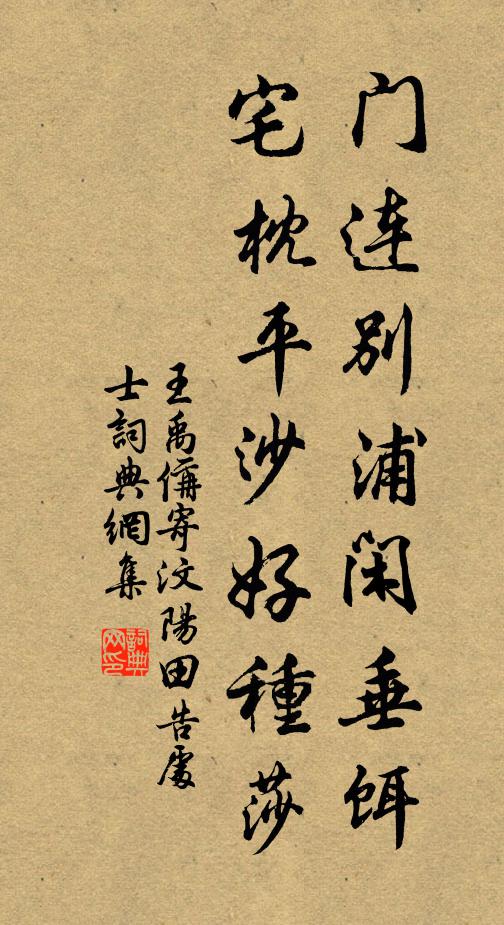 门连别浦闲垂饵
宅枕平沙好種莎
王禹偁寄汶陽田告處
士詞典網集
詞典
网印